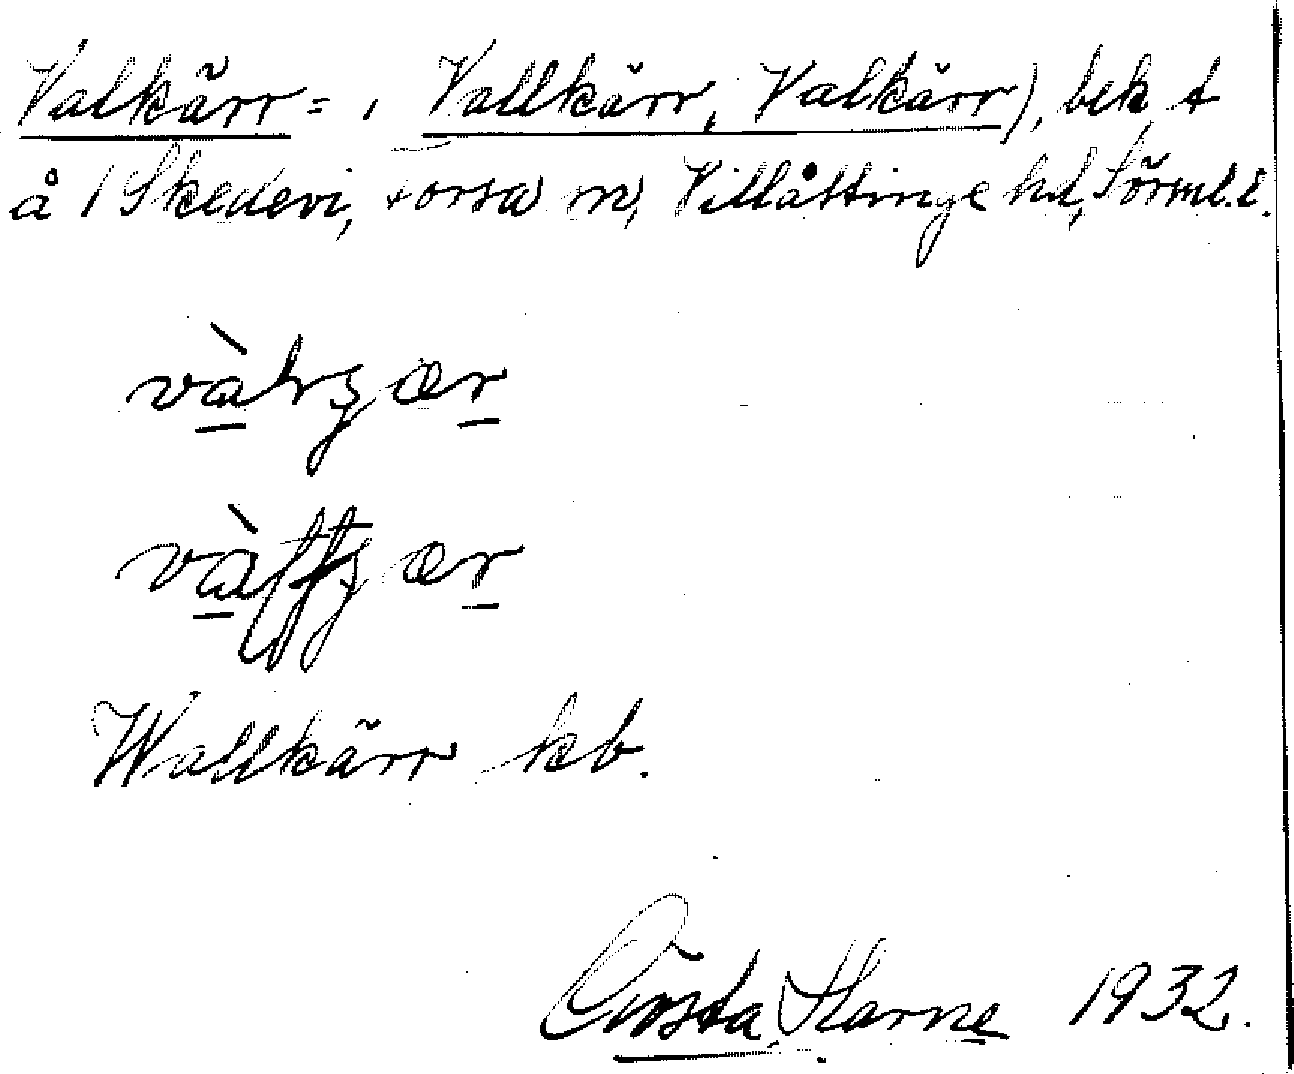 Valkärr = , Vallkärr, Valkärr), bek t
å / Skedevi, Forsa sn, Villåttinge hd, Sörml. l.
Wallkärr kb.
Gösta Harne 1932.